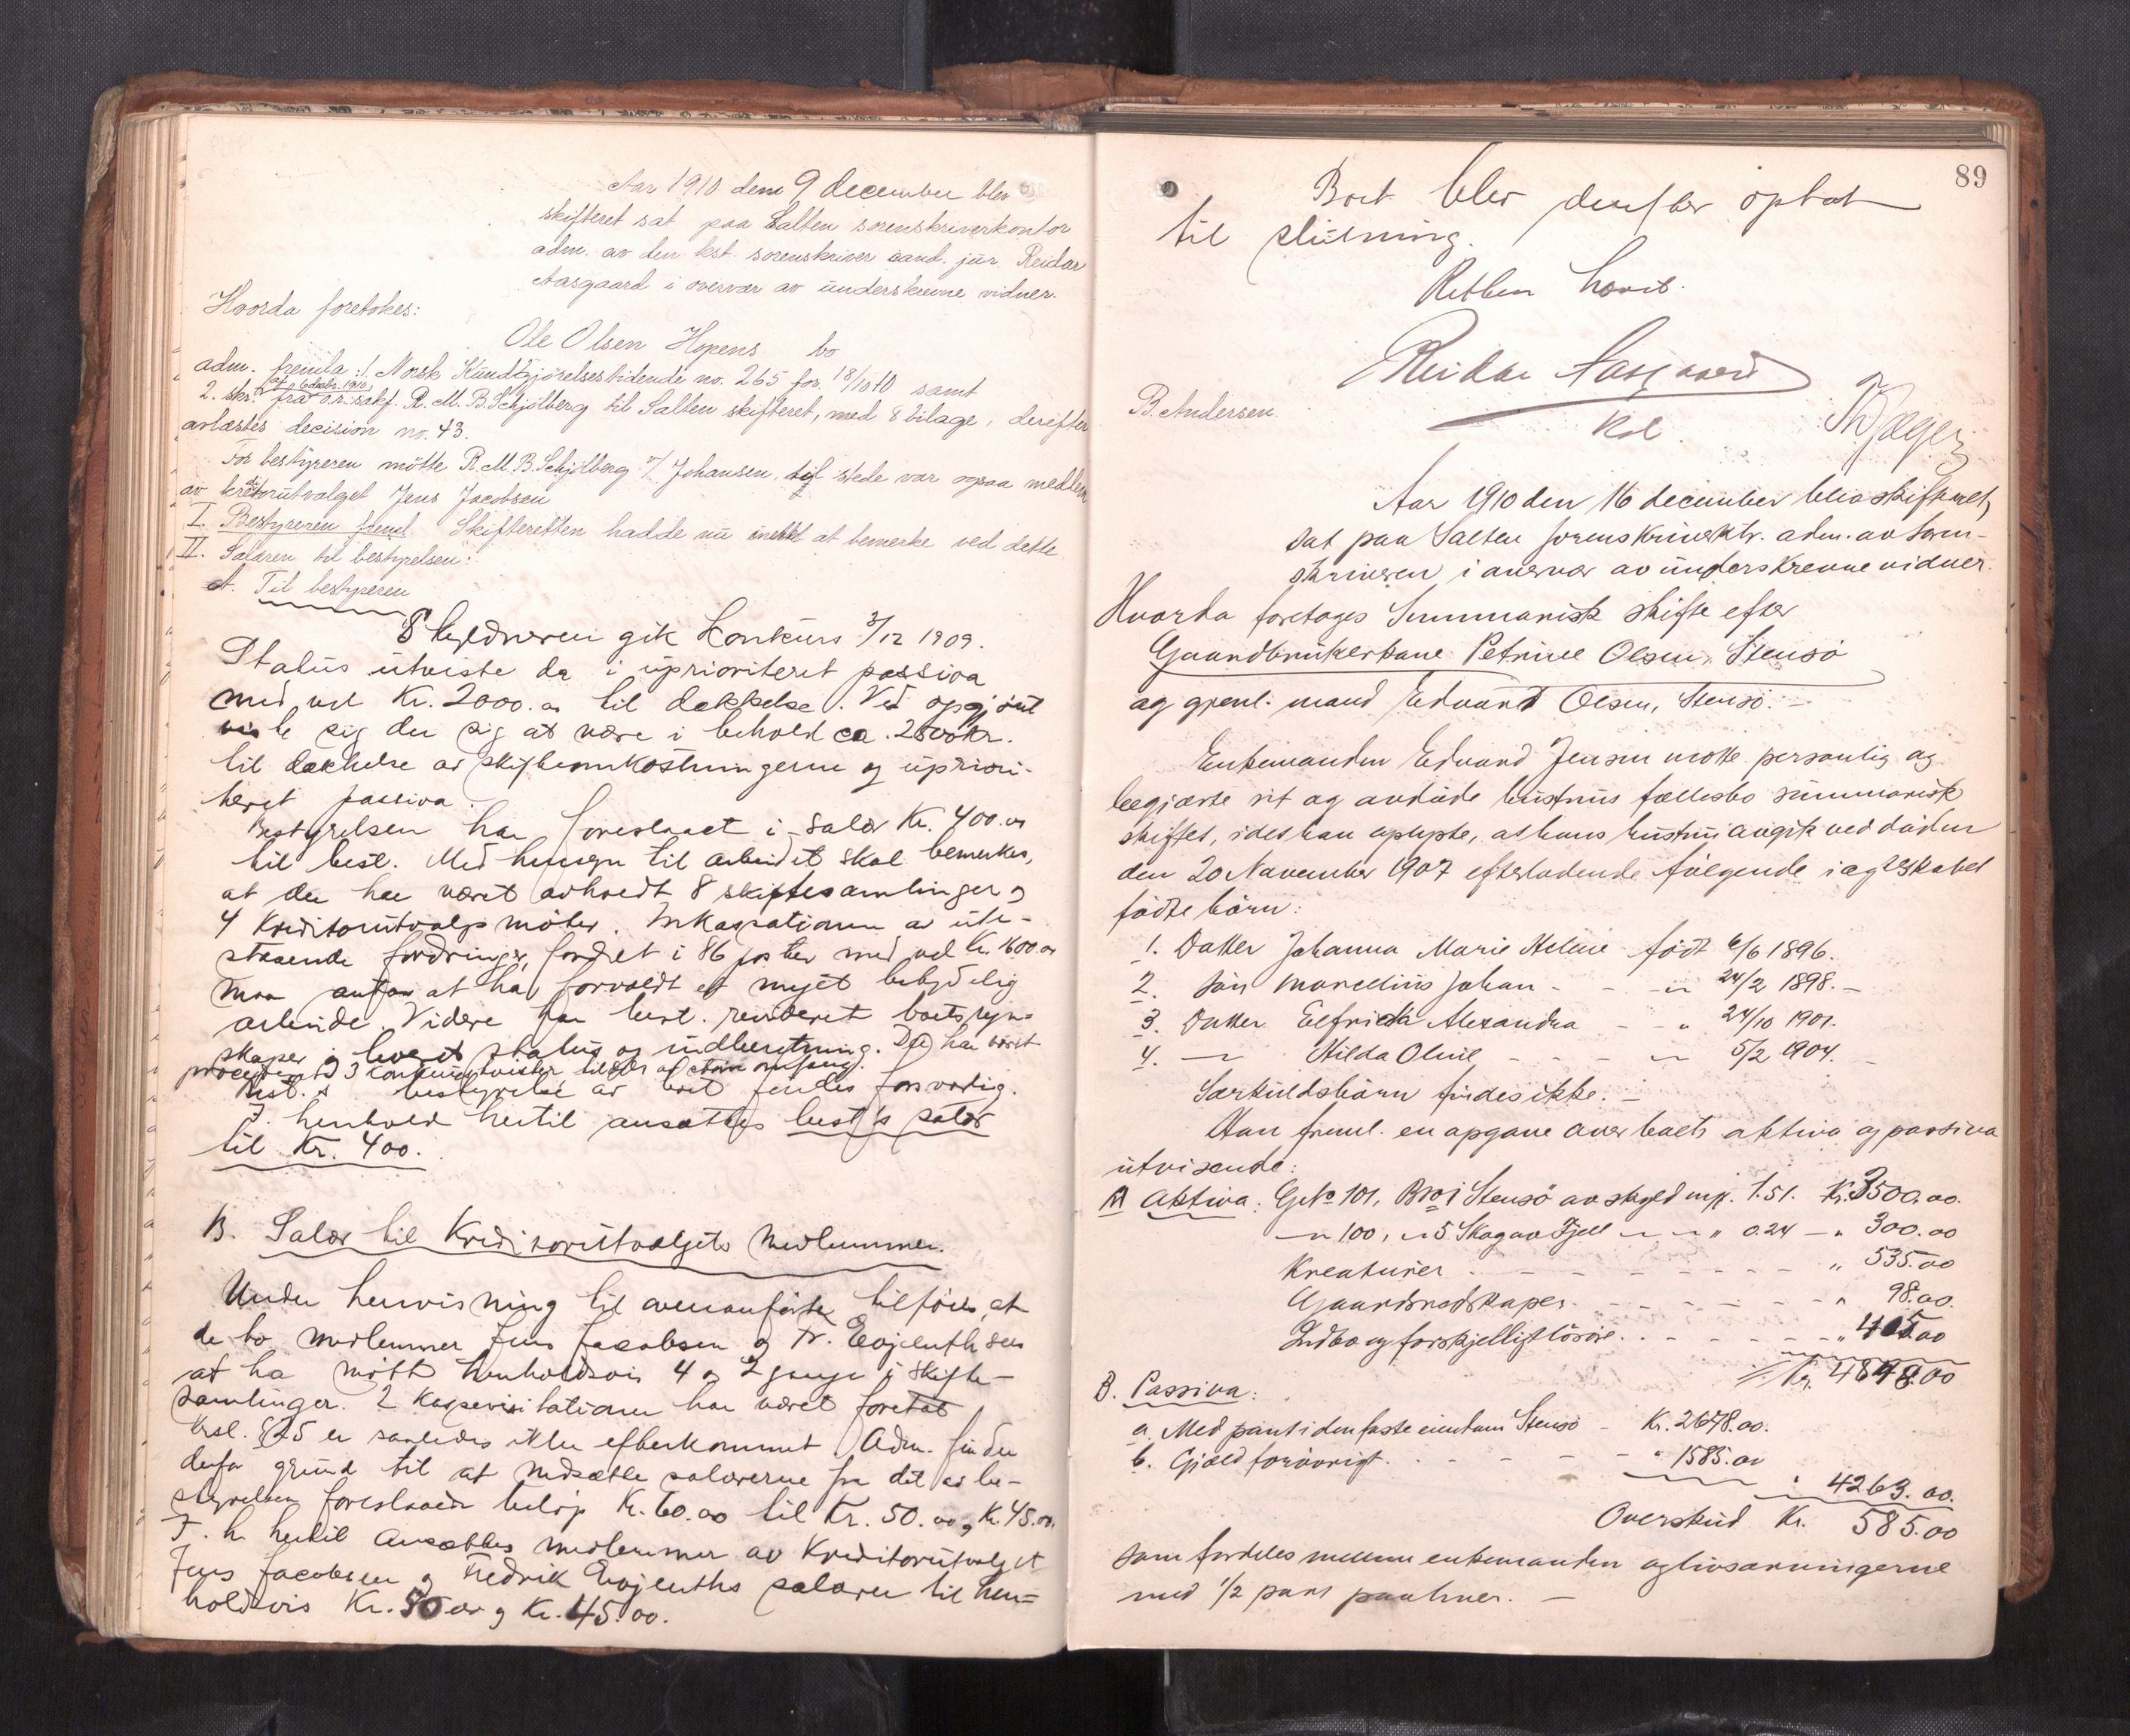 Aar 1910 den 9 december blev
skifteret sat paa Salten sorenskriverkontor
adm. av den kst. sorenskriver cand. jur. Reidar
Aasgaard i overvær av underskrevne vidner.
Hvorda foretokes:
Ole Olsen Hopens bo
adm. fremla: 1. Norsk Kundgjörelsestidende no. 265 for 18/11 10 samt
af 6 decbr. 1910
2. skr. fra o.r.sakf. R. M. B. Schjölberg til Salten skifteret, med 8 bilage, derefter
avlæstes decision no. 43.
For bestyreren mötte R. M. B. Schjölberg v/ Johansen, til stede var ogsaa medlem
av kreditorutvalget Jens Jacobsen
I. Bestyreren freml. Skifteretten hadde nu intet at bemerke ved dette
II. Salæren til bestyrelsen:
A. Til bestyreren
Skyldneren gik konkurs 3/12 1909.
Status utviste da i uprioriteret passiva
med vel Kr. 2000.00 til dækkelse. Ved opgjöret
viste sig der sig at være i behold ca. 2800 kr.
til dækkelse av skifteomkostningerne og upriori-
teret passiva.
Bestyrelsen har foreslaaet i salær Kr. 400.00
til best. Med hensyn til arbeidet skal bemerkes,
at der har været avholdt 8 skiftesamlinger og
4 Kreditorutvalgsmöter. Inkassationen av ute-
staaende fordringer, fordelt i 86 poster med vel Kr. 1600.00
maa antas at ha forvoldt et meget betydelig
arbeide. Videre har best. revideret boets regn-
skaper og levert status og indberetning. Der har været
procedert 3 konkurstvister tildels av större omfang.
Best.s bestyrelse av boet findes forsvarlig.
I henhold hertil ansættes best's salær
til Kr. 400.
B. Salær til Kreditorutvalgets medlemmer.
Under henvisning til ovenanförte tilföies, at
de to medlemmer Jens Jacobsen og Fr. Evjenth sees
at ha mött henholdsvis 4 og 2 gange i skifte-
samlinger. 2 kassevisitationer har været foretat
Ksl. § 25 er saaledes ikke efterkommet. Adm. finder
derfor grund til at nedsætte salærerne fra det av be-
styrelsen foreslaaede belöp Kr. 60.00 til Kr. 50.00 og Kr. 45.00.
I. h. hertil ansættes medlemmer av Kreditorutvalget
Jens Jacobsen og Fredrik Evjenths salærer til hen-
holdsvis Kr. 50.00 og Kr. 45.00.
89
Boet blev derefter optat
til slutning.
Retten hævet.
Reidar Aasgaard
Kst.
B. Andersen.
Th Jæger
Aar 1910 den 16 december blev skifteret
sat paa Salten sorenskriverktr. adm. av soren-
skriveren i overvær av underskrevne vidner.
Hvorda foretages Summarisk skifte efter
Gaardbrukerkone Petrine Olsen, Stensö
og gjenl. mand Edvard Olsen, Stensö. –
Enkemanden Edvard Jensen mötte personlig og
begjærte sit og avdöde hustrus fællesbo summarisk
skiftet, idet han oplyste, at hans hustru avgik ved döden
den 20 November 1907 efterladende fölgende i egteskabet
födte börn:
1. Datter Johanna Marie Helene födt 6/6 1896.
2. Sön Marcellius Johan - - " 24/2 1898. –
3. Datter Elfrieda Alexandra - " 24/10 1901.
4. — Hilda Oluil - - - " 5/2 1904. –
Særkuldsbörn findes ikke. –
Han freml. en opgave over boets aktiva og passiva
utvisende:
A Aktiva: Gno 101, Bno 1 Stensö av skyld mrk. 1.51. Kr. 3500.00.
— " 100, " 5 Skogav Fjell — " — " " 0.24 — " 300.00
Kreaturer - - - - - - " 535.00
Gaardsredskaper - - - - - - " 98.00.
Indbo og forskjelligt lösöre. - - - - - " 415.00
Kr. 4848.00
B. Passiva:
a. Med pant i den faste eiendom Stensö - Kr. 2678.00.
b. Gjæld forövrigt. - - - - " 1585.00
" 4263.00.
Overskud Kr. 585.00
som fordeles mellem enkemanden og livsarvingerne
med 1/2 part paa hver. –